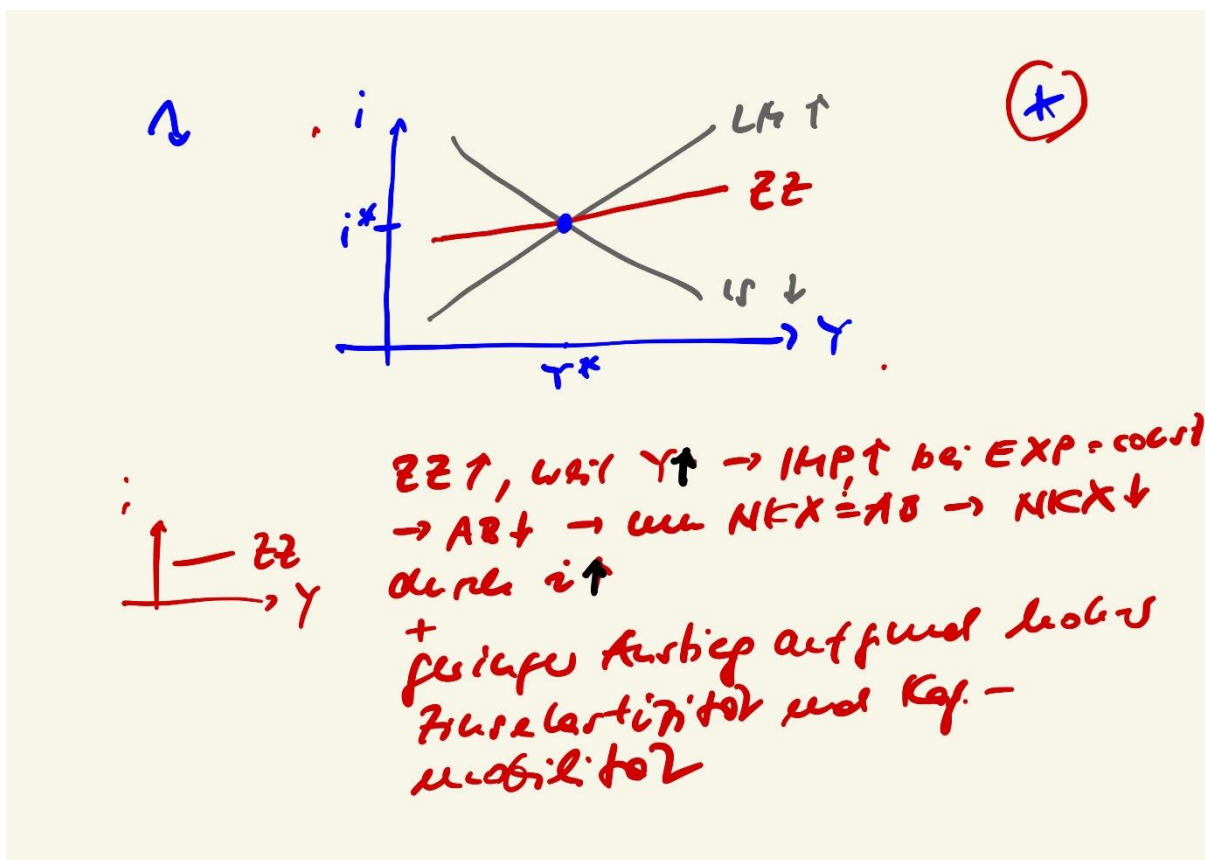 i
*
LM ↑
ZZ
i*
IS ↓
Y
Y*
ZZ↑, weil Y↑ → IMP↑ bei EXP = const
→ AB↓ → wenn NKX = AB → NKX↓
!
i
durch i↑
ZZ
Y
+
geringer Anstieg aufgrund hoher
Zinselastizität und Kap. -
mobilität